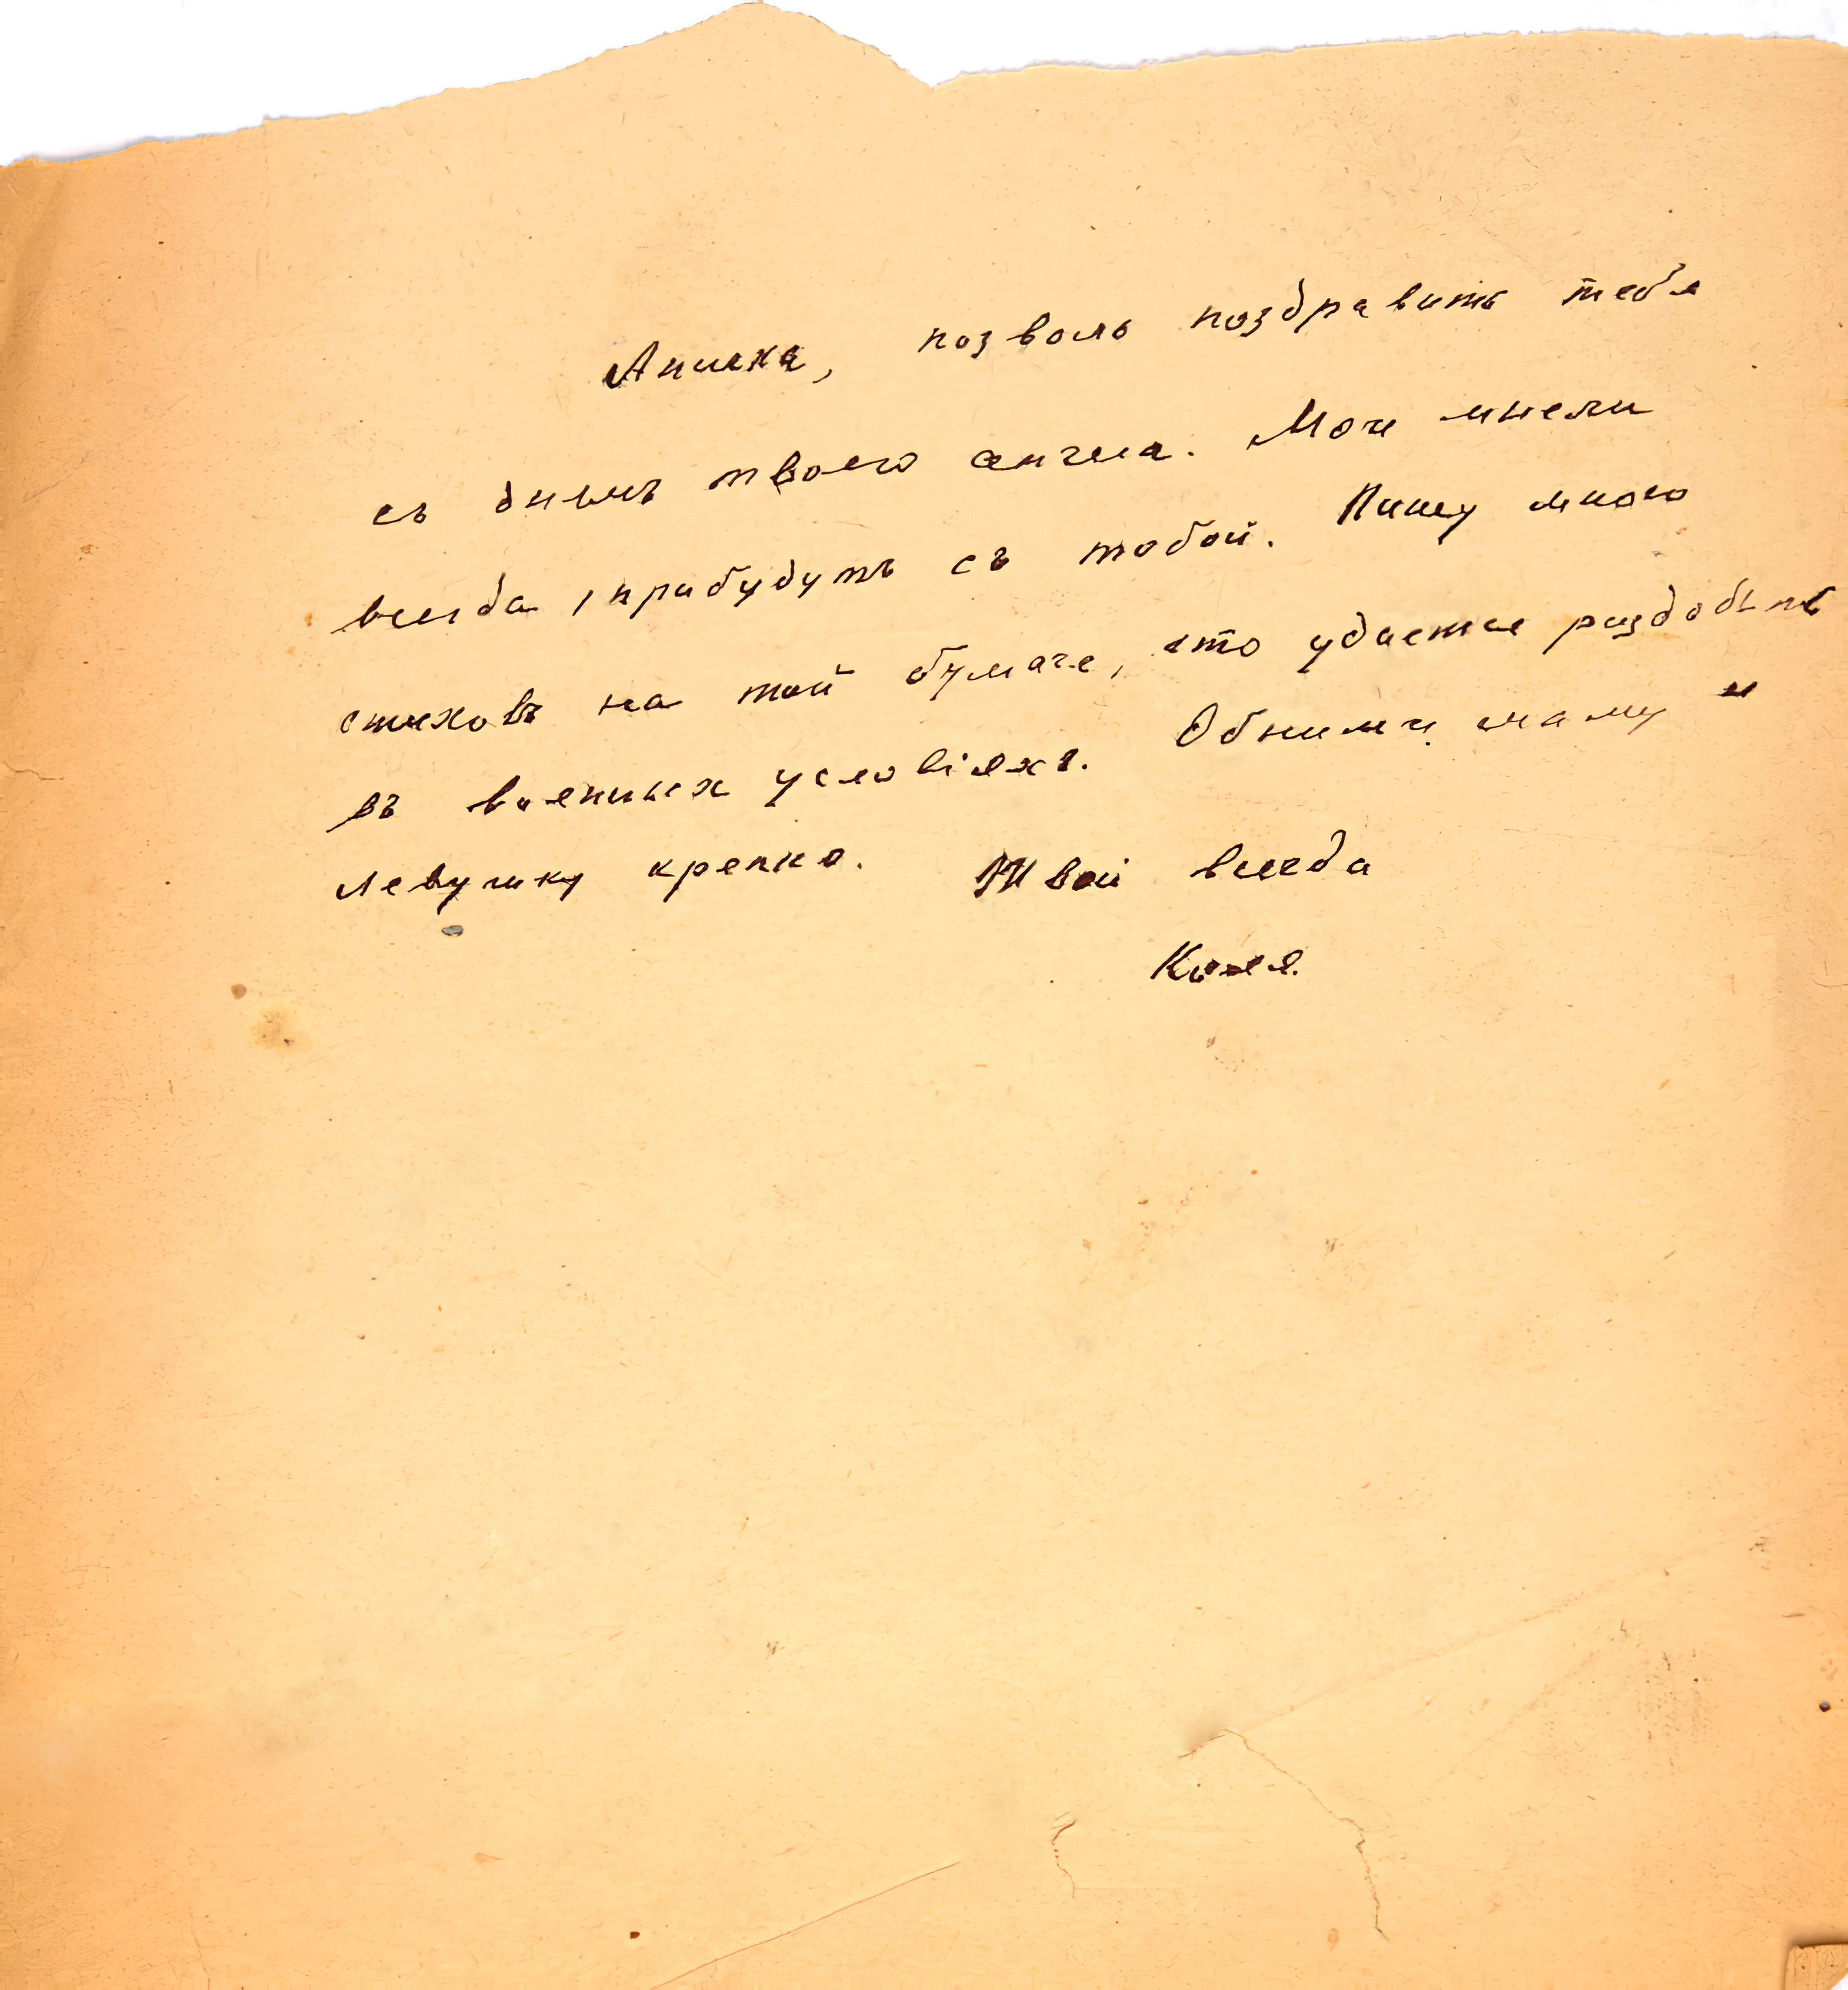 Аничка, позволь поздравить тебя
съ днемъ твоего ангела. Мои мысли
всегда прибудутъ съ тобой. Пишу много
стиховъ на той бумаге, что удается раздобыть
въ военных условіяхъ. Обними маму и
Левушку крепко. Твой всегда
Коля.